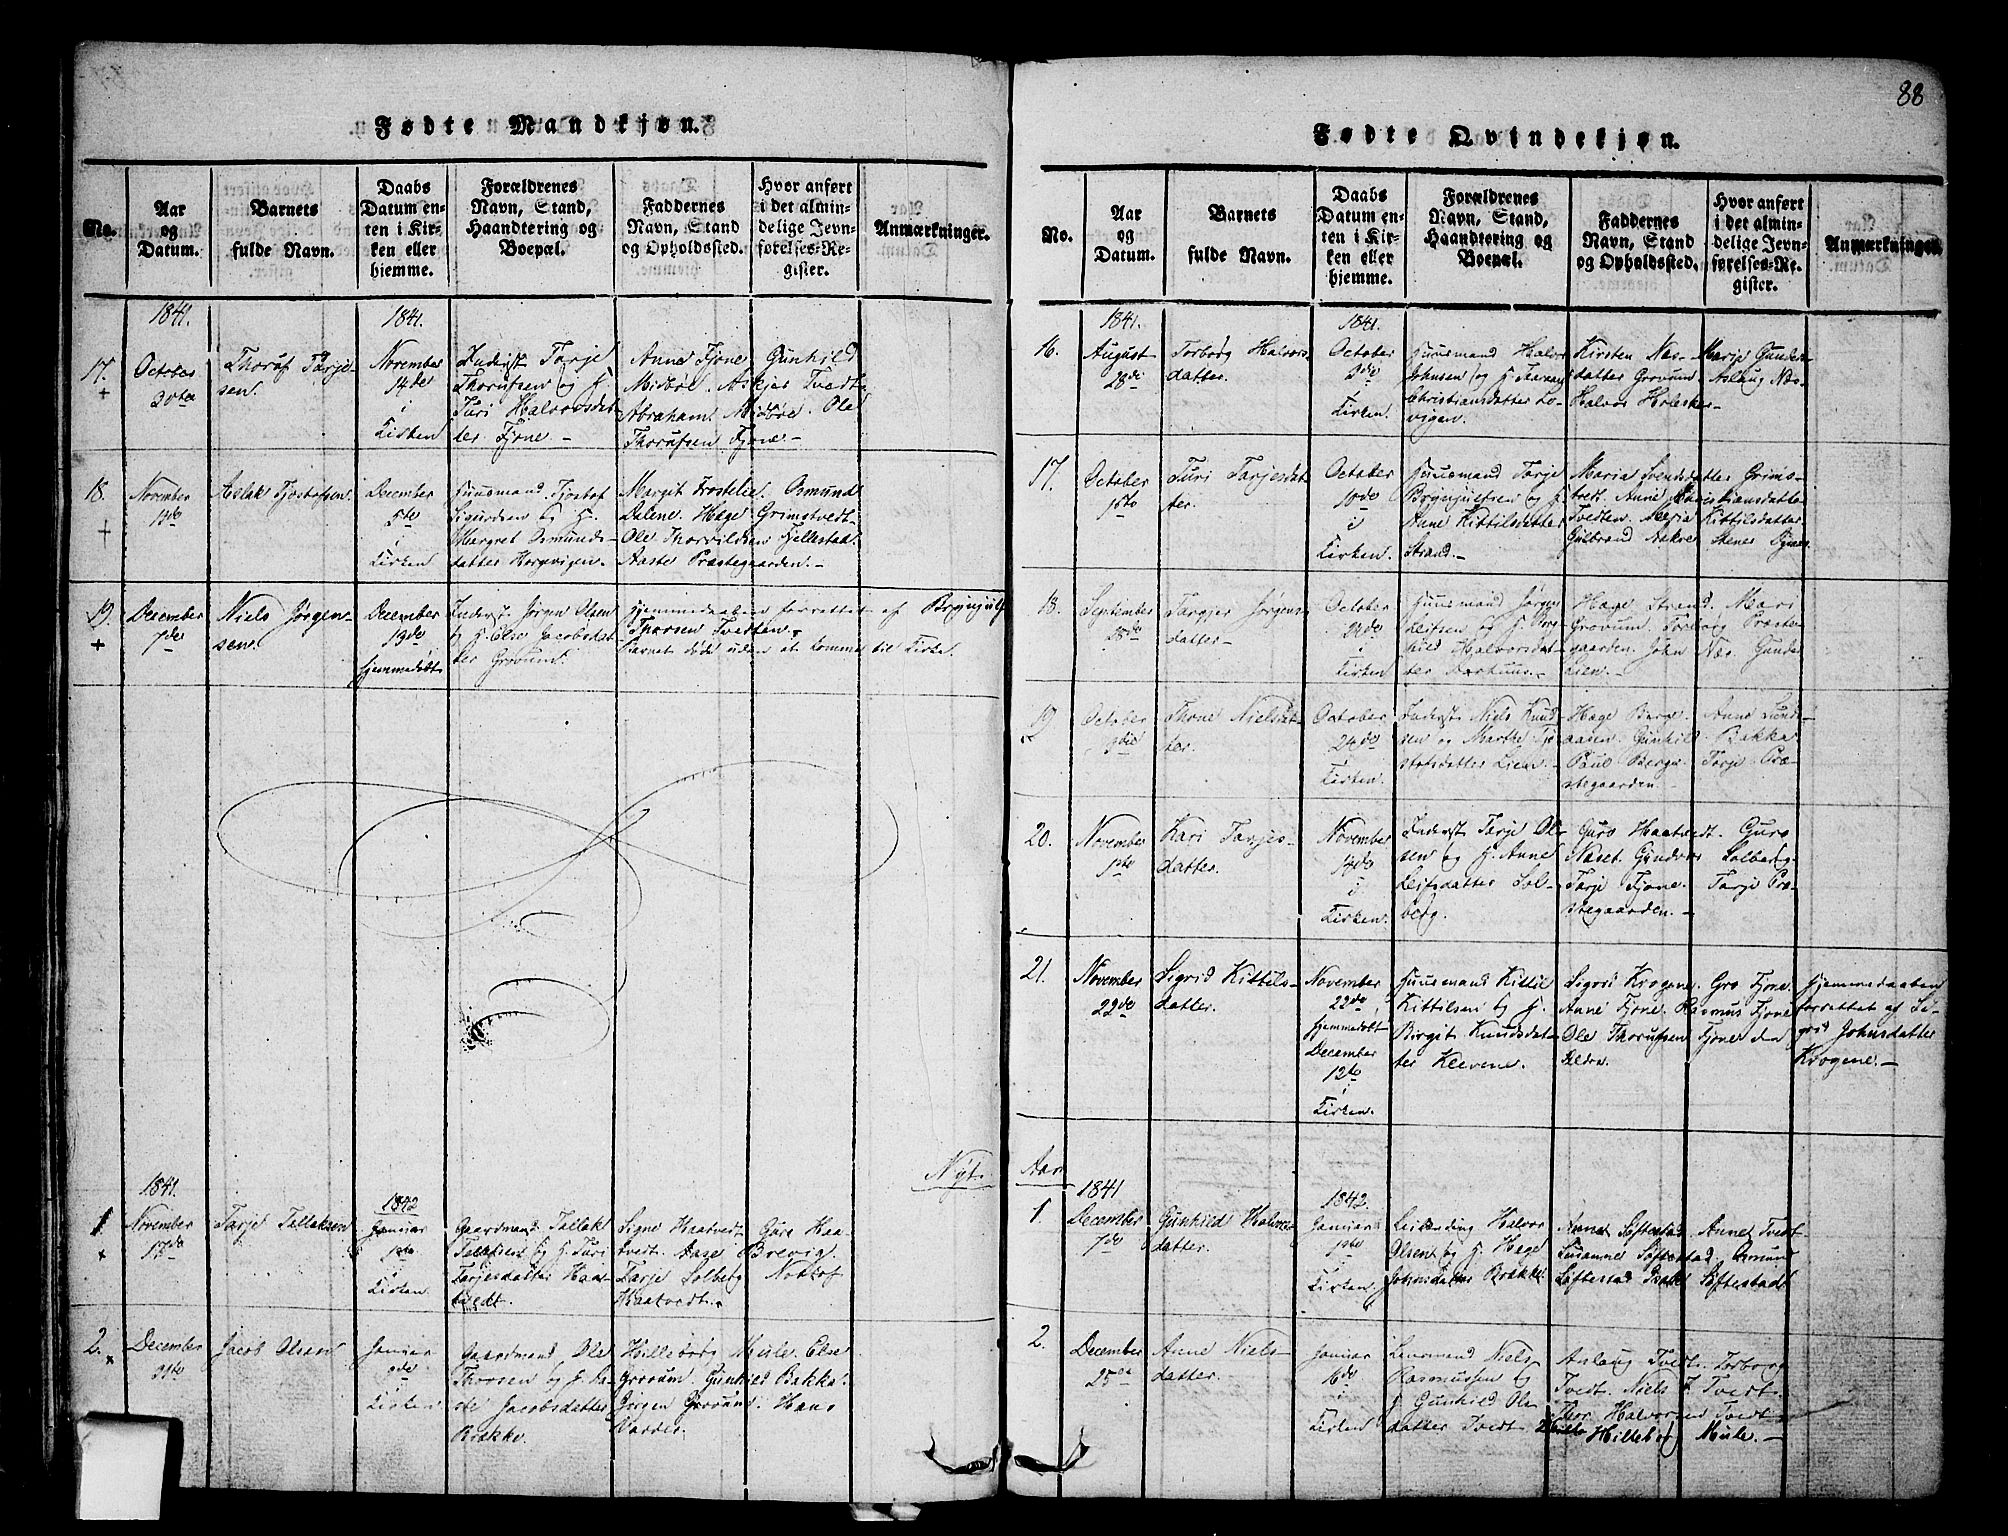 88
Fødte Mandkjøn.
No.
Aar og Datum.
Barnets fulde Navn.
Daabs Datum enten i Kirken eller hjemme.
Forældrenes Navn, Stand, Haandtering og Boepæl.
Faddernes Navn, Stand og Opholdssted.
Hvor anført i det almindelige Jevnførelses-Register.
Anmærkninger.
1841.
1841.
17.
October
30te
Thoruf Tarje-
sen.
November
14de
i
Kirken
Inderst Tarje
Thorufsen og H.
Turi Halvorsdat
ter Fjone –
Anne Fjone Gunhild
Midbøe. Askjer Tvedt
Abraham Midbøe. Ole
Thorufsen Fjone –
18.
November
19de
Aslak Fjostofsen.
December
5te
i
Kirken
Huusmand Fjostof
Sigurdsen og H.
Margret Osmunds-
datter Horgevigen.
Margit Frostelie. Osmund
Dalene. Hæge Grimstvedt
Ole Thorvildsen Fjellestad.
Aaste Præstegaarden. –
19.
December
7de
Niels Jørgen-
sen.
December
19de
hjemmedøbt
Inderst Jørgen Olsen
og H. Else Jacobsdat
ter Grovum.
Hjemmedaaben forrettet af Brynjulf
Thorsen Tvedten.
Barnet døde uden at komme til Kirke.
Nyt
1841.
1842
1.
November
17de
Tarje Tallaksen
Januar
1ste
i
Kirken
Gaardmand Tallak
Tellefsen og H. Turi
Tarjesdatter Haa-
tvedt.
Signe Haatvedt Guro Haa
tvedt. Aase Brevig
Tarje Solberg Nottof
Haatvedt.
2.
December
31te
Jacob Olsen
Januar
9de
i
Kirken
Gaardmand Ole
Thorsen og H. Aa
se Jacobsdatter
Brække.
Hilleborg Mule. Else
Grovum. Gunhild Bakka.
Jørgen Grovum. Hans
Vorder.
Fødte Qvindekjøn.
No.
Aar og Datum.
Barnets fulde Navn.
Daabs Datum enten i Kirken eller hjemme.
Forældrenes Navn, Stand, Haandtering og Boepæl.
Faddernes Navn, Stand og Opholdssted.
Hvor anført i det almindelige Jevnførelses-Register.
Anmærkninger.
1841.
1841.
16.
August
28de
Torborg Halvors
datter.
October
3de
i
Kirken.
Huusmand Halvor
Johnsen og H. Taaran
Christiansdatter Lo-
vigen.
Kirsten Næs- Marje Gunders
datter Grovum. Aslaug Næs.
Halvor Holesker –
17.
October
1ste
Turi Tarjesdat
ter.
October
10de
i
Kirken.
Huusmand Tarje
Brynjulfsen og H.
Anne Kittilsdatter
Strand. –
Maria Svendsdatter Grims-
tvedt. Anne Christiansdatter
Tvedten. Maria Kittilsdatter
Gulbrand Askve. Stener Fjone.
18.
September
Targjer Jørgens
datter –
October
24de
i
Kirken
Huusmand Jørgen
Leifsen og H. Tor-
hild Halvorsdat-
ter Aarhuus. –
Hæge Strand. Mari
Grovum. Torborg Præste-
gaarden. John Næs. Gunder
Lien. –
19
October
3die
Thone Nielsdat
ter.
October
24de
i
Kirken.
Inderst Niels Knud
sen og Marthe Fjo
stofsdatter Lien –
Hæge Berge. Anne Lunde-
aasen. Gunhild Bakka
Paul Berge. Tarje Præ-
stegaarden. –
20.
November
1ste
Kari Tarjes-
datter.
November
14de
i
Kirken.
Inderst Tarje Ole
sen og H. Anne
Leifsdatter Sol-
berg.
Guro Haatvedt. Guro
Naset. Gundvor Solberg.
Tarje Fjone. Tarje Præ-
stegaarden. –
21.
November
22de
Sigrid Kittils-
datter.
November
22de
hjemmedøbt
December
12te
i
Kirken.
Huusmand Kittil
Kittilsen og H.
Birgit Knudsdat
ter Kleevene.
Sigrid Krogene. Gro Fjone.
Anne Fjone. Rasmus Fjone
Ole Thorufsen Fjone den
Eldre.
Hjemmedaaben
forrettet af Si-
grid Johnsdatter
Krogene. –
Aar
1841
1842.
1.
December
7de
Gunhild Halvors
datter.
Januar
1ste
i
Kirken
Leilænding Halvor
Olsen og H. Hæge
Johnsdatter Brække.
Anne Søftestad. Anne Tvedt
Susanne Søftestad. Osmund
Søftestad. Isak Søftestad
2.
December
25de
Anne Niels-
datter.
Januar
16de
i
Kirken
Lensmand Niels
Rasmussen og
H. Gunhild Ole
datter Tvedt
Aslaug Tvedt. Torborg
Tvedt. Niels J. Tvedt
Thor Halvorsen Tvedt
Hilleborg Mule. –